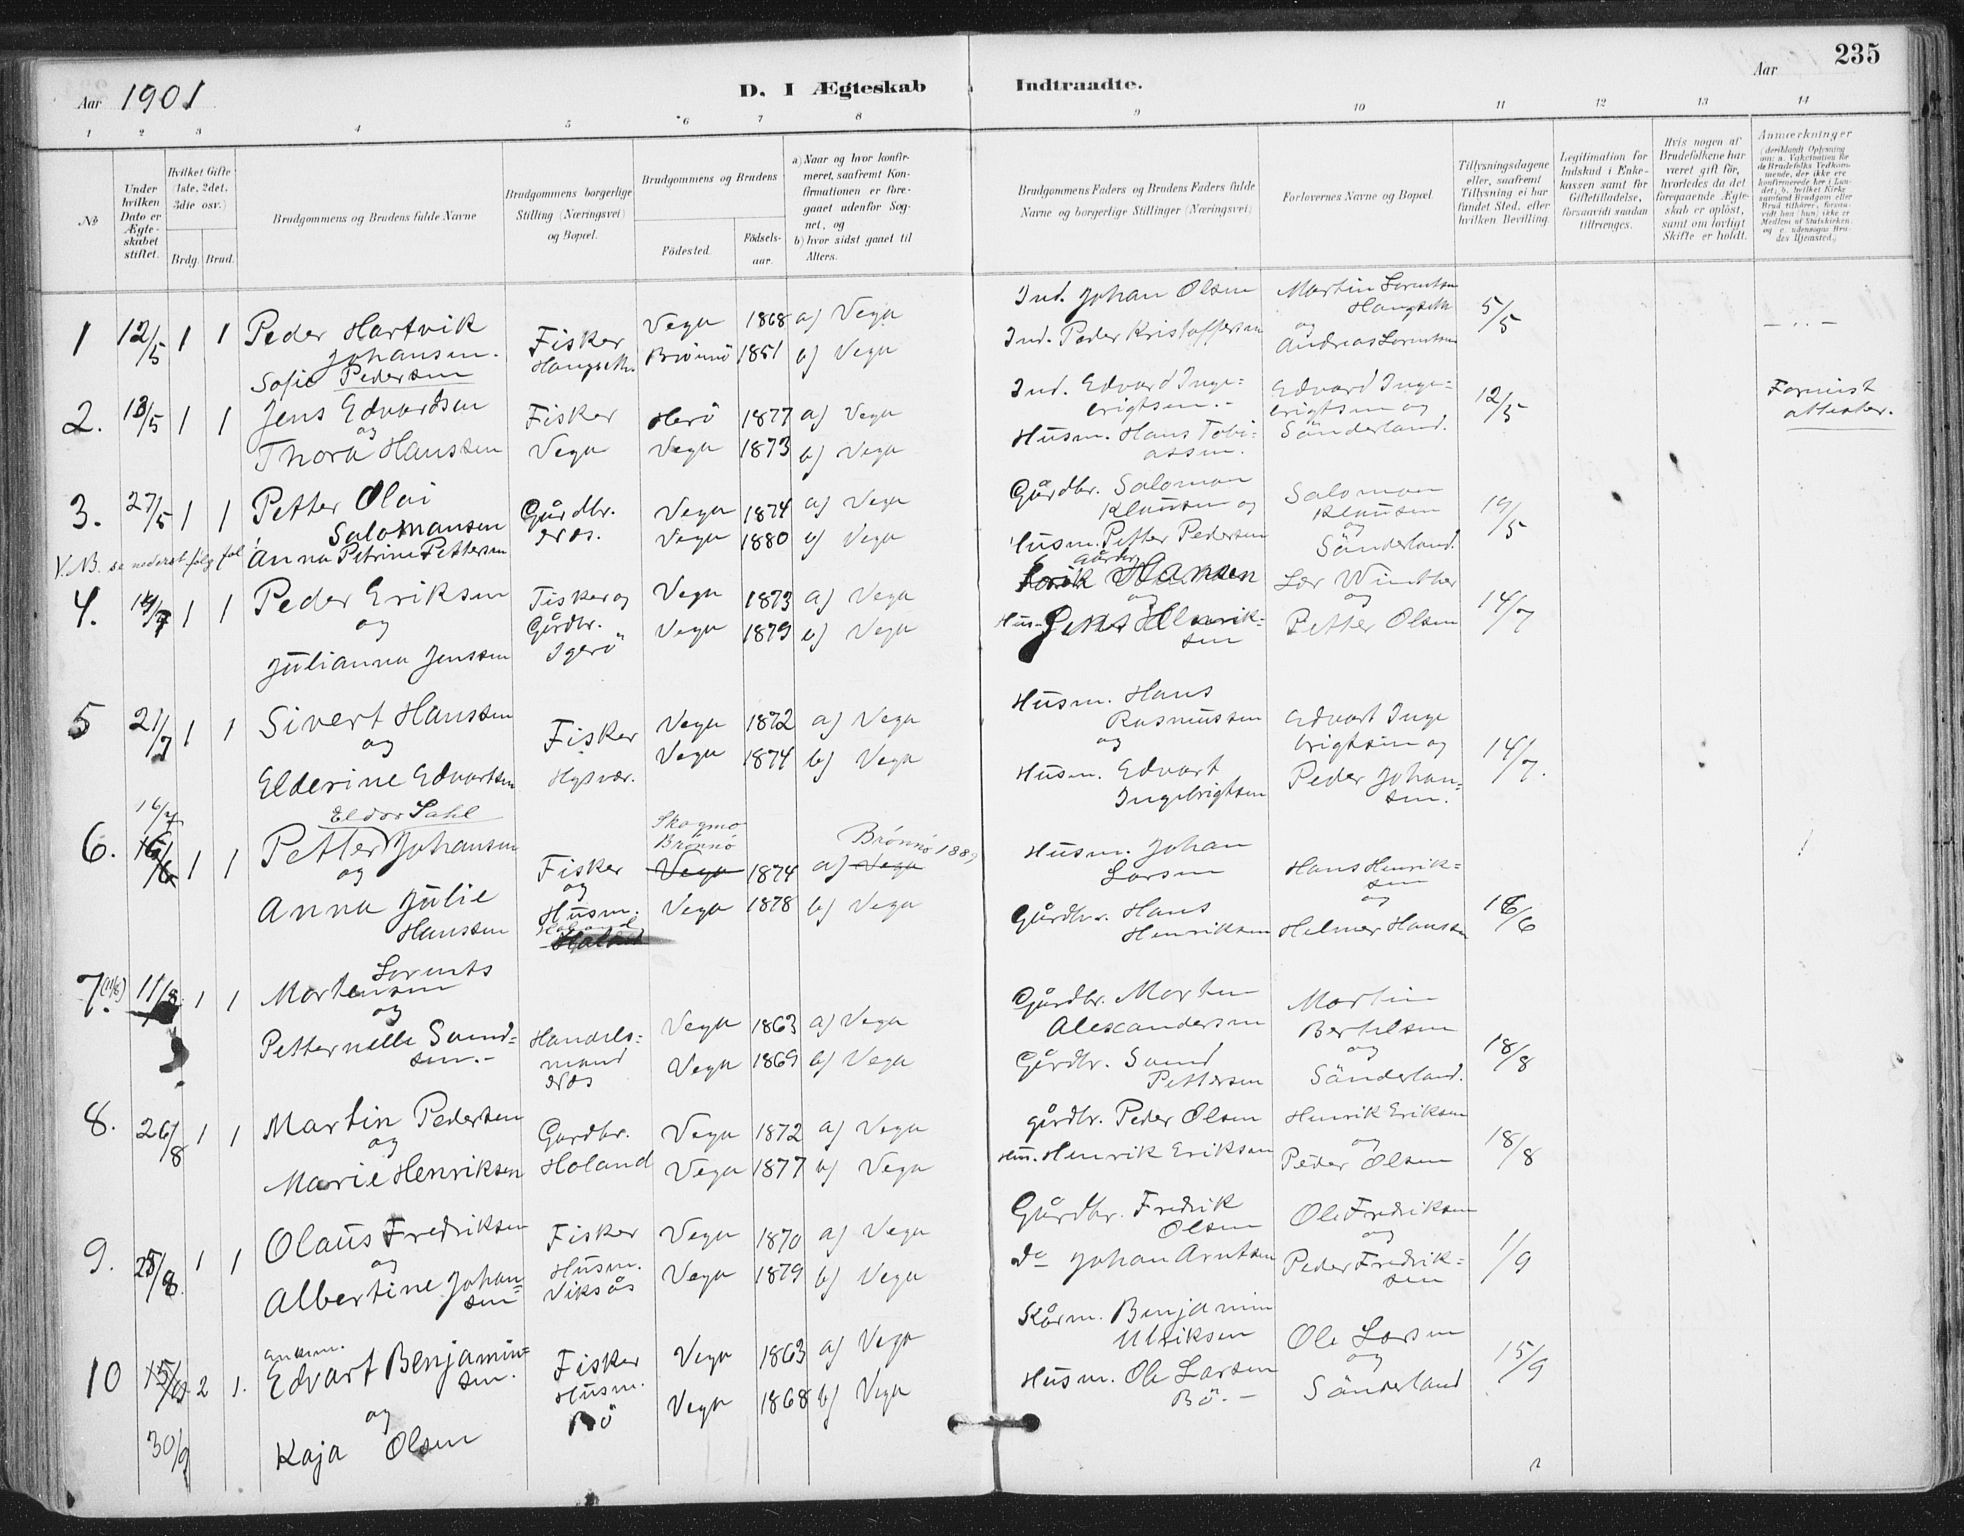 235
Aar 1901
D. I Ægteskab Indtraadte.
Aar
1 2 3 4 5 6 7 8 9 10 11 12 13 14
No
Under hvilken Dato er Ægteskabet stiftet.
Hvilket Gifte (1ste, 2det, 3die osv.)
Brdg. Brud.
Brudgommens og Brudens fulde Navne
Brudgommens borgerlige Stilling (Næringsvei) og Bopæl.
Brudgommens og Brudens
Födested.
Födselsaar.
a) Naar og hvor konfirmeret, saafremt Konfirmationen er foreganet udenfor Sognet, og
b) hvor sidst gaaet til Alters.
Brudgommens Faders og Brudens Faders fulde Navne og borgerlige Stillinger (Næringsvei)
Forlovernes Navne og Bopæl.
Tillysningsdagene eller, saafremt Tillysning ei har fundet Sted, efter hvilken Bevilling.
Legitimation for Indskud i Enkekassen samt for Giftetilladelse, forsaavidt saadan tiltrænges.
Hvis nogen af Brudefolkene har været gift för, hvorledes da det foregaaende Ægteskab er oplöst, samt om lovligt Skifte er holdt.
Anmærkninger
1 12/5 1 1 Peder Hartvik Johansen. Fisker Vega 1868 a) Vega Ind. Johan Olsen Martin Lorentsen 5/5 — " —
Sofie Pedersen Brönnö 1851 b) Vega Ind. Peder Kristoffersen og Andreas Lorentsen
2. 13/5 1 1 Jens Edvardsen Fisker Herö 1877 a) Vega Ind. Edvard Ingebrigtsen.- Edvard Ingebrigtsen og 12/5
og
Thora Hanssen Vega Vega 1873 b) Vega Husm. Hans Tobiassen. Sönderland. attester.
3. 27/5 1 1 Petter Olai Salomansen Gårdbr. Vega 1874 a) Vega Gårdbr. Salomon Klausen og Salomon Klausen 19/5
Anna Petrine Pettersen Vega 1880 b) Vega Husm. Petter Pedersen og Sönderland.
V.N.B. se nederst følg fol
4. 14/7 1 1 Peder Eriksen Fisker og Vega 1873 a) Vega Gårdbr. Erik Hansen Lor Winther 14/7
og Gårdbr. og og
Julianna Jenssen Igerö Vega 1879 b) Vega Husm. Jens Henriksen Petter Olsen
5 21/7 1 1 Sivert Hanssen Fisker Vega 1872 a) Vega Husm. Hans Rasmussen Edvart Ingebrigtsen og 14/7.
og og
Elderine Edvartsen Hysvær. Vega 1874 b) Vega Husm. Edvart Ingebrigtsen Peder Johansen.
16/7 Eldor Dahl Skogmo Brönnö Brönnö 1889
6. 16/6 1 1 Petter Johansen Fisker Vega 1874 a) Vega Husm. Johan Larsen Hans Henriksen 16/6
og og og
Anna Julie Hanssen Husm. Holand Vega 1878 b) Vega Gårdbr. Hans Henriksen Helmer Hanssen
7. (11/8) 11/8 1 1 Lorents Mortensen Handelsmand Vega 1863 a) Vega Gårdbr. Morten Alexandersen Martin Bertelsen 18/8
og og
Petternelle Sundsen.- Vega 1869 b) Vega Gårdbr. Pettersen Sönderland.
8. 26/8 1 1 Martin Pedersen Gardbr. Vega 1872 a) Vega gårdbr. Peder Olsen Henrik Eriksen 18/8
og og
Marie Henriksen Holand Vega 1877 b) Vega Hus. Henrik Eriksen Peder Olsen
9. 25/8. 1 1 Olaus Fredriksen Fisker Vega 1870 a) Vega Gårdbr. Fredrik Olsen Ole Fredriksen 1/9
og Husm. og
Albertine Johansen Viksås Vega 1879 b) Vega do Johan Arntsen Peder Fredriksen
10 15/9 2 1. Enkem. Edvart Benjaminsen. Fisker Vega 1863 a) Vega Kårm. Benjamin Ulriksen Ole Larsen 15/9
og Husm. og
30/9 Kaja Olsen Bö Vega 1868 b) Vega Husm. Ole Larsen Bö.- Sönderland